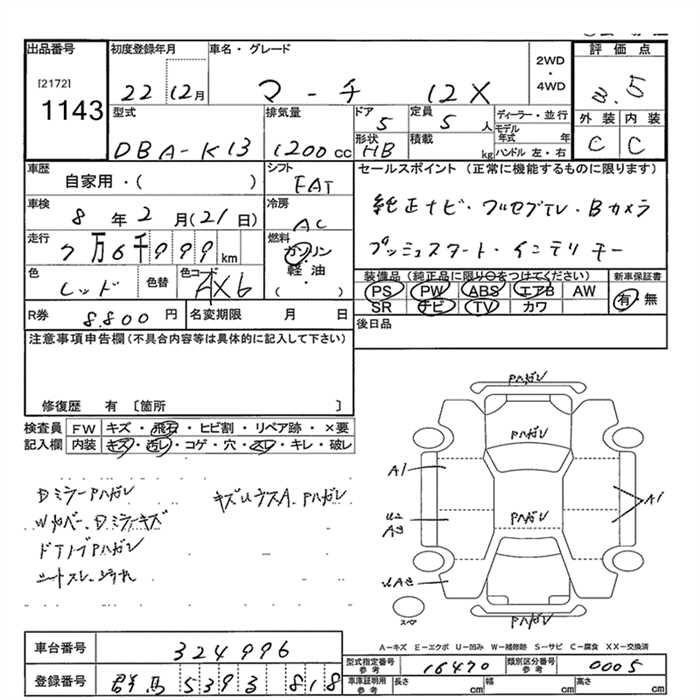 出品番号 初度登録年月 車名・グレード 2WD・4WD 評価点
[2172]
1143
22 12月 マーチ 12X
3.5
型式 排気量 ドア 定員 ディーラー・並行 外装 内装
DBA-K13 1200cc 5 5人 モデル年式 年 C C
形状 HB 積載 kg ハンドル 左・右
車歴 シフト セールスポイント(正常に機能するものに限ります)
自家用・( ) FAT
車検 冷房 純正ナビ・ワンセグTV・Bカメラ
8年2月(21日) AC
走行 燃料 プッシュスタート・インテリキー
7万6千999km ガソリン・軽油・( )
色 色替 色コード 装備品(純正品に限り○をつけてください) 新車保証書
レッド AXb PS PW ABS エアB AW 有・無
SR ナビ TV カワ
R券 8,800円 名変期限 月 日 後日品
注意事項申告欄(不具合内容等は具体的に記入して下さい)
修復歴 有〔箇所 〕
検査員記入欄 FW キズ・飛石・ヒビ割・リペア跡・×要
内装 キズ・汚レ・コゲ・穴・スレ・キレ・破レ
Dミラー Pハガレ キズ Uウス A. Pハガレ
Wカバー. Dミラーキズ
ドアノブ Pハガレ
シートスレ.
Pハガレ
Pハガレ
A1 A1
Pハガレ
Pハガレ
スペア
A-キズ E-エクボ U-凹み W-補修跡 S-サビ C-腐食 XX-交換済
車台番号 324996
型式指定番号 参考 16470 類別区分番号 参考 0005
登録番号 群馬 5393 818
車庫証明用 参考 長さ cm 幅 cm 高さ cm